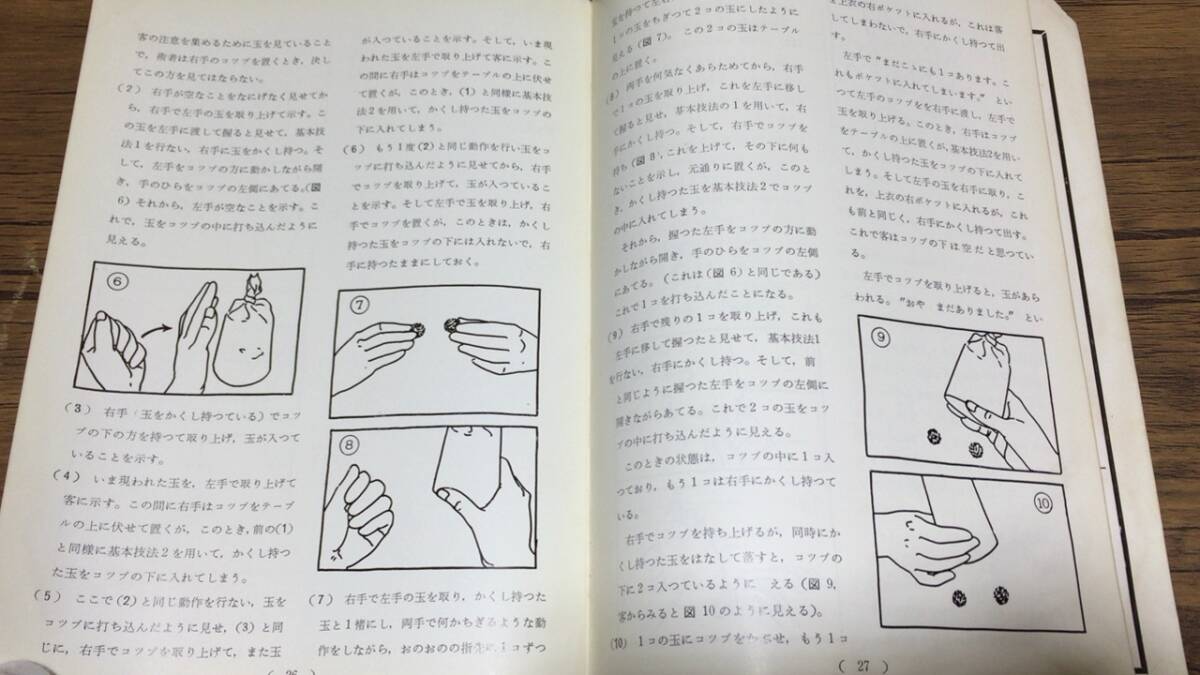 客の注意を集めるために玉を見ていること
で，術者は右手のコツプを置くとき，決し
てこの方を見てはならない。
(2) 右手が空なことをなにげなく見せてか
ら，右手で左手の玉を取り上げて示す。こ
の玉を左手に渡して握ると見せて，基本技
法1を行ない，右手に玉をかくし持つ。そ
して，左手をコツプの方に動かしながら開
き，手のひらをコツプの左側にあてる。(図
6) それから，左手が空なことを示す。こ
れで，玉をコツプの中に打ち込んだように
見える。
⑥
(3) 右手（玉をかくし持つている）でコツ
プの下の方を持つて取り上げ，玉が入つて
いることを示す。
(4) いま現われた玉を，左手で取り上げて
客に示す。この間に右手はコツプをテーブ
ルの上に伏せて置くが，このとき，前の(1)
と同様に基本技法2を用いて，かくし持つ
た玉をコツプの下に入れてしまう。
(5) ここで(2)と同じ動作を行ない，玉を
コツプに打ち込んだように見せ，(3)と同
じに，右手でコツプを取り上げて，また玉
が入つていることを示す。そして，いま現
われた玉を左手で取り上げて客に示す。こ
の間に右手はコツプをテーブルの上に伏せ
て置くが，このとき，(1)と同様に基本技
法2を用いて，かくし持つた玉をコツプの
下に入れてしまう。
(6) もう1度(2)と同じ動作を行い玉をコ
ツプに打ち込んだように見せてから，右手
でコツプを取り上げて，玉が入つているこ
とを示す。そして左手で玉を取り上げ，右
手でコツプを置くが，このときは，かくし
持つた玉をコツプの下には入れないで，右
手に持つたままにしておく。
⑦
⑧
(7) 右手で左手の玉を取り，かくし持つた
玉と1緒にし，両手で何かちぎるような動
作をしながら，おのおのの指先に1コずつ
( 26 )
玉を持つて左右
1コの玉をちぎつて2コの玉にしたように
見える(図7)。この2コの玉はテーブル
の上に置く。
(8) 両手を何気なくあらためてから，右手
で1コの玉を取り上げ，これを左手に移し
て握ると見せ，基本技法の1を用いて，右
手にかくし持つ。そして，右手でコツプを
持ち(図8)，これを上げて，その下に何も
ないことを示し，元通りに置くが，このと
き，かくし持つた玉を基本技法2でコツプ
の中に入れてしまう。
それから，握つた左手をコツプの方に動
かしながら開き，手のひらをコツプの左側
にあてる。(これは(図6)と同じである)
これで1コを打ち込んだことになる。
(9) 右手で残りの1コを取り上げ，これも
左手に移して握つたと見せて，基本技法1
を行ない，右手にかくし持つ。そして，前
と同じように握つた左手をコツプの左側に
開きながらあてる。これで2コの玉をコツ
プの中に打ち込んだように見える。
このときの状態は，コツプの中に1コ入
つており，もう1コは右手にかくし持つて
いる。
右手でコツプを持ち上げるが，同時にか
くし持つた玉をはなして落すと，コツプの
下に2コ入つているように　える(図9，
客からみると図10のように見える)。
(10) 1コの玉にコツプをかぶせ，もう1コ
を上衣の右ポケツトに入れるが，これは落
してしまわないで，右手にかくし持つて出
す。
左手で〝まだこゝにも1コあります。こ
れもポケツトに入れてしまいます。〟とい
つて左手のコツプをを右手に渡し，左手で
玉を取り上げる。このとき，右手はコツプ
をテーブルの上に置くが，基本技法2を用い
て，かくし持つた玉をコツプの下に入れて
しまう。そして左手の玉を右手に取り，こ
れを，上衣の右ポケツトに入れるが，これ
も前と同じく，右手にかくし持つて出す。
これで客はコツプの下は空だと思つてい
る。
左手でコツプを取り上げると，玉があら
われる。〝おや　まだありました。〟とい
⑨
⑩
( 27 )